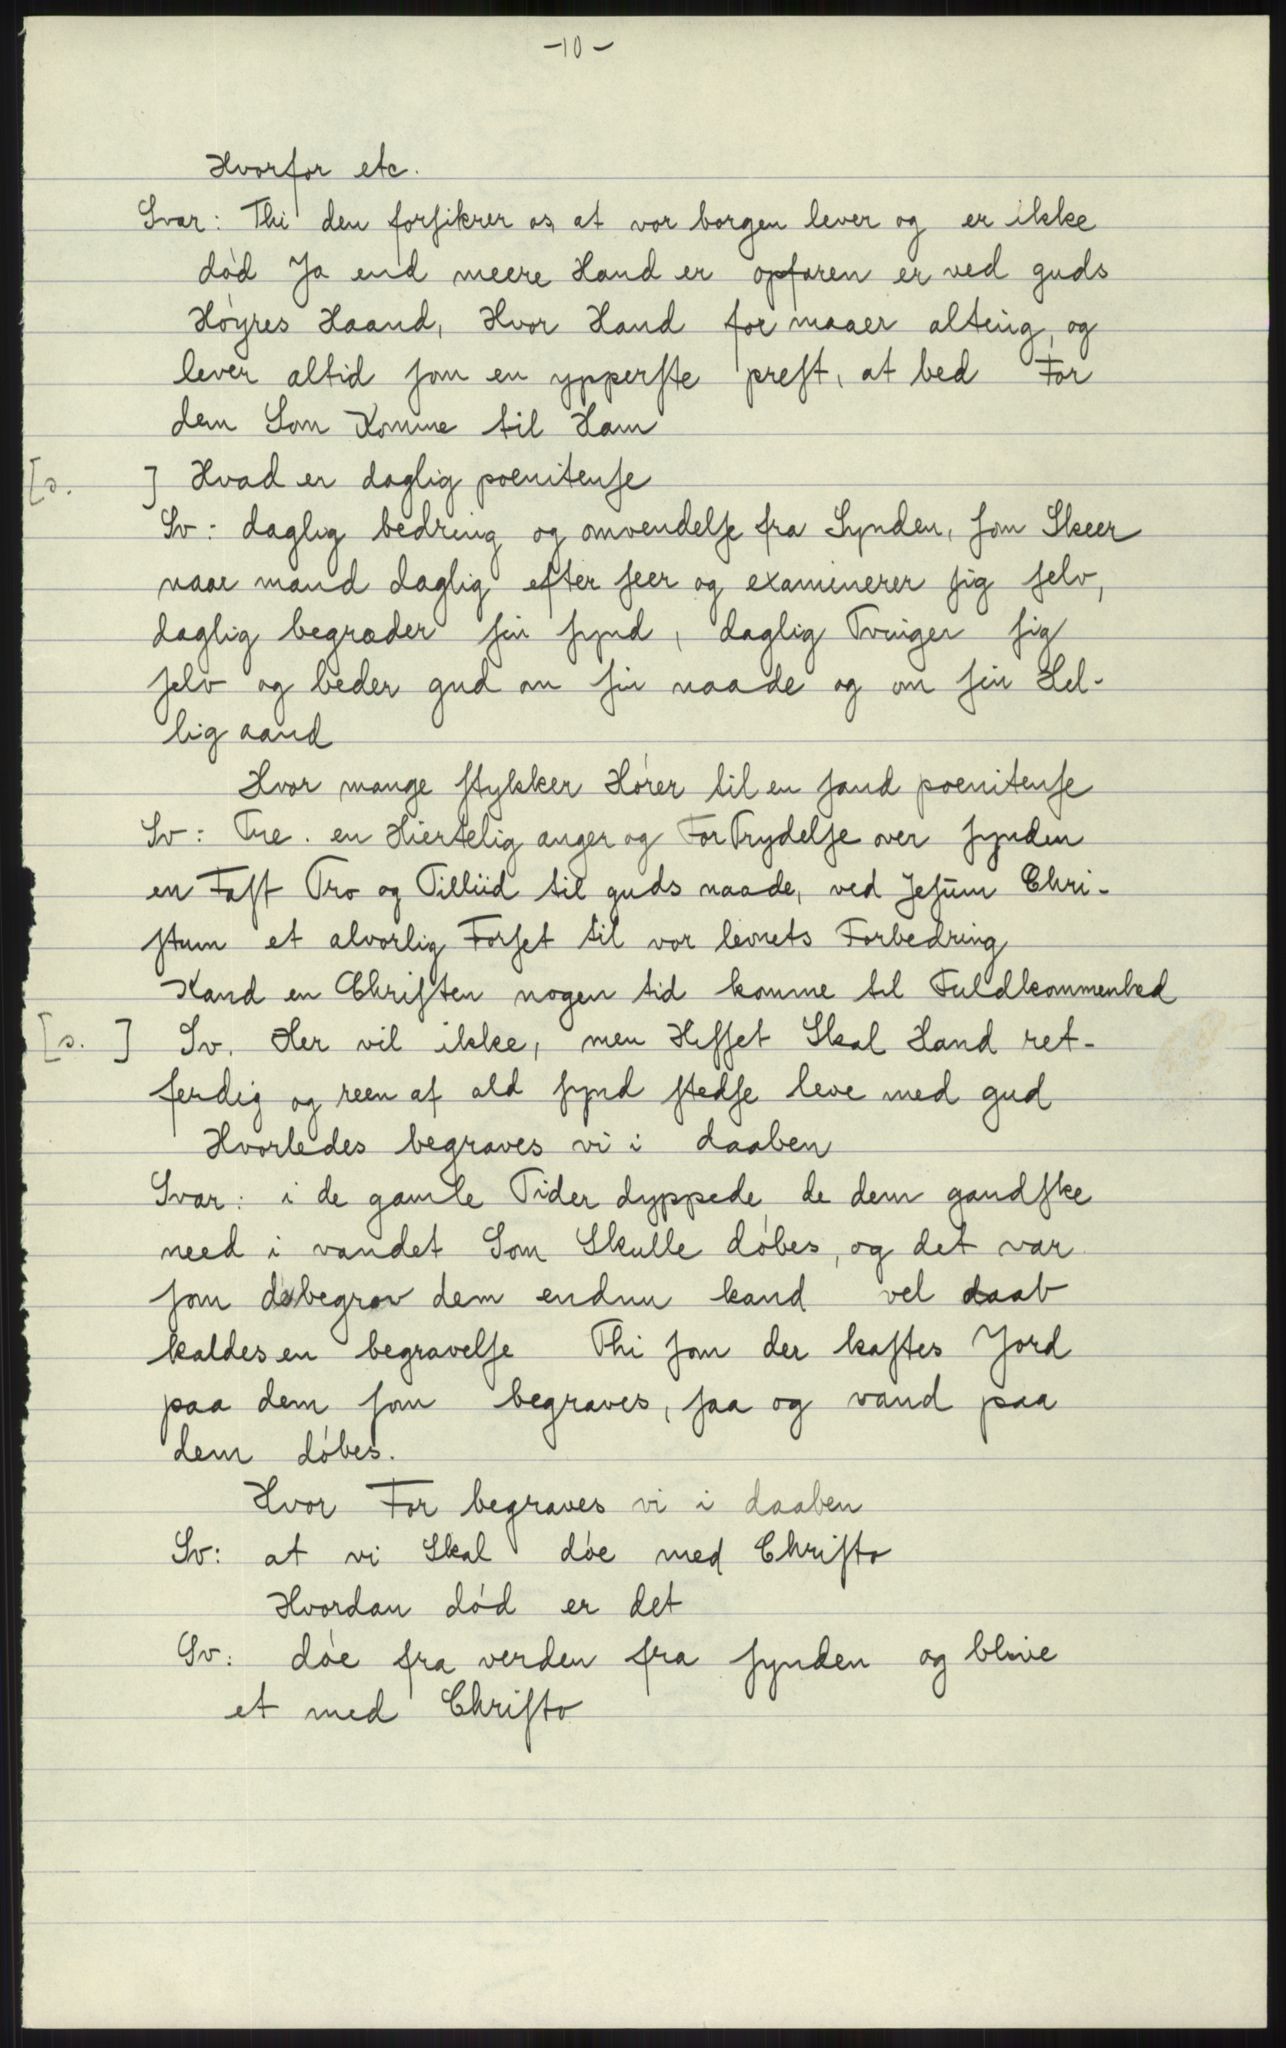 -10-
Hvorfor etc.
Svar: Thi den forsikrer os, at vor borgen lever og er ikke
død Ja end meere Hand er opfaren er ved guds
Høyres Haand, Hvor Hand for maaer alting, og
lever altid ſom en ypperſte preſt, at bed For
dem Som Komme til Ham
[s. ] Hvad er daglig poenitenſe
Sv: daglig bedring og omvendelſe fra Synden, ſom Skeer
naar mand daglig efter ſeer og examinerer ſig ſelv,
daglig begræder ſin ſynd, daglig Tvinger ſig
ſelv og beder gud om ſin naade og om ſin Hel-
lig aand
Hvor mange ſtykker Hører til en ſand poenitenſe
Sv: Tre. en Hiertelig anger og ForTrydelſe over ſynden
en Faſt Tro og Tilliid til guds naade, ved Jeſum Chri-
ſtum et alvorlig Forſet til vor levnets Forbedring
Kand en Chriſten nogen tid komme til Fuldkommenhed
[s. ] Sv. Her vil ikke, men Hiſſet Skal Hand ret-
ferdig og reen af ald ſynd ſtedſe leve med gud
Hvorledes begraves vi i daaben
Svar: i de gamle Tider dyppede de dem gandſke
need i vandet Som Skulle døbes, og det var
ſom de begrov dem endnu kand vel daab
kaldes en begravelſe Thi ſom der kaſtes Jord
paa dem ſom begraves, ſaa og vand paa
dem døbes.
Hvor For begraves vi i daaben
Sv: at vi Skal døe med Chriſto
Hvordan død er det
Sv: døe fra verden fra ſynden og blive
et med Chriſto